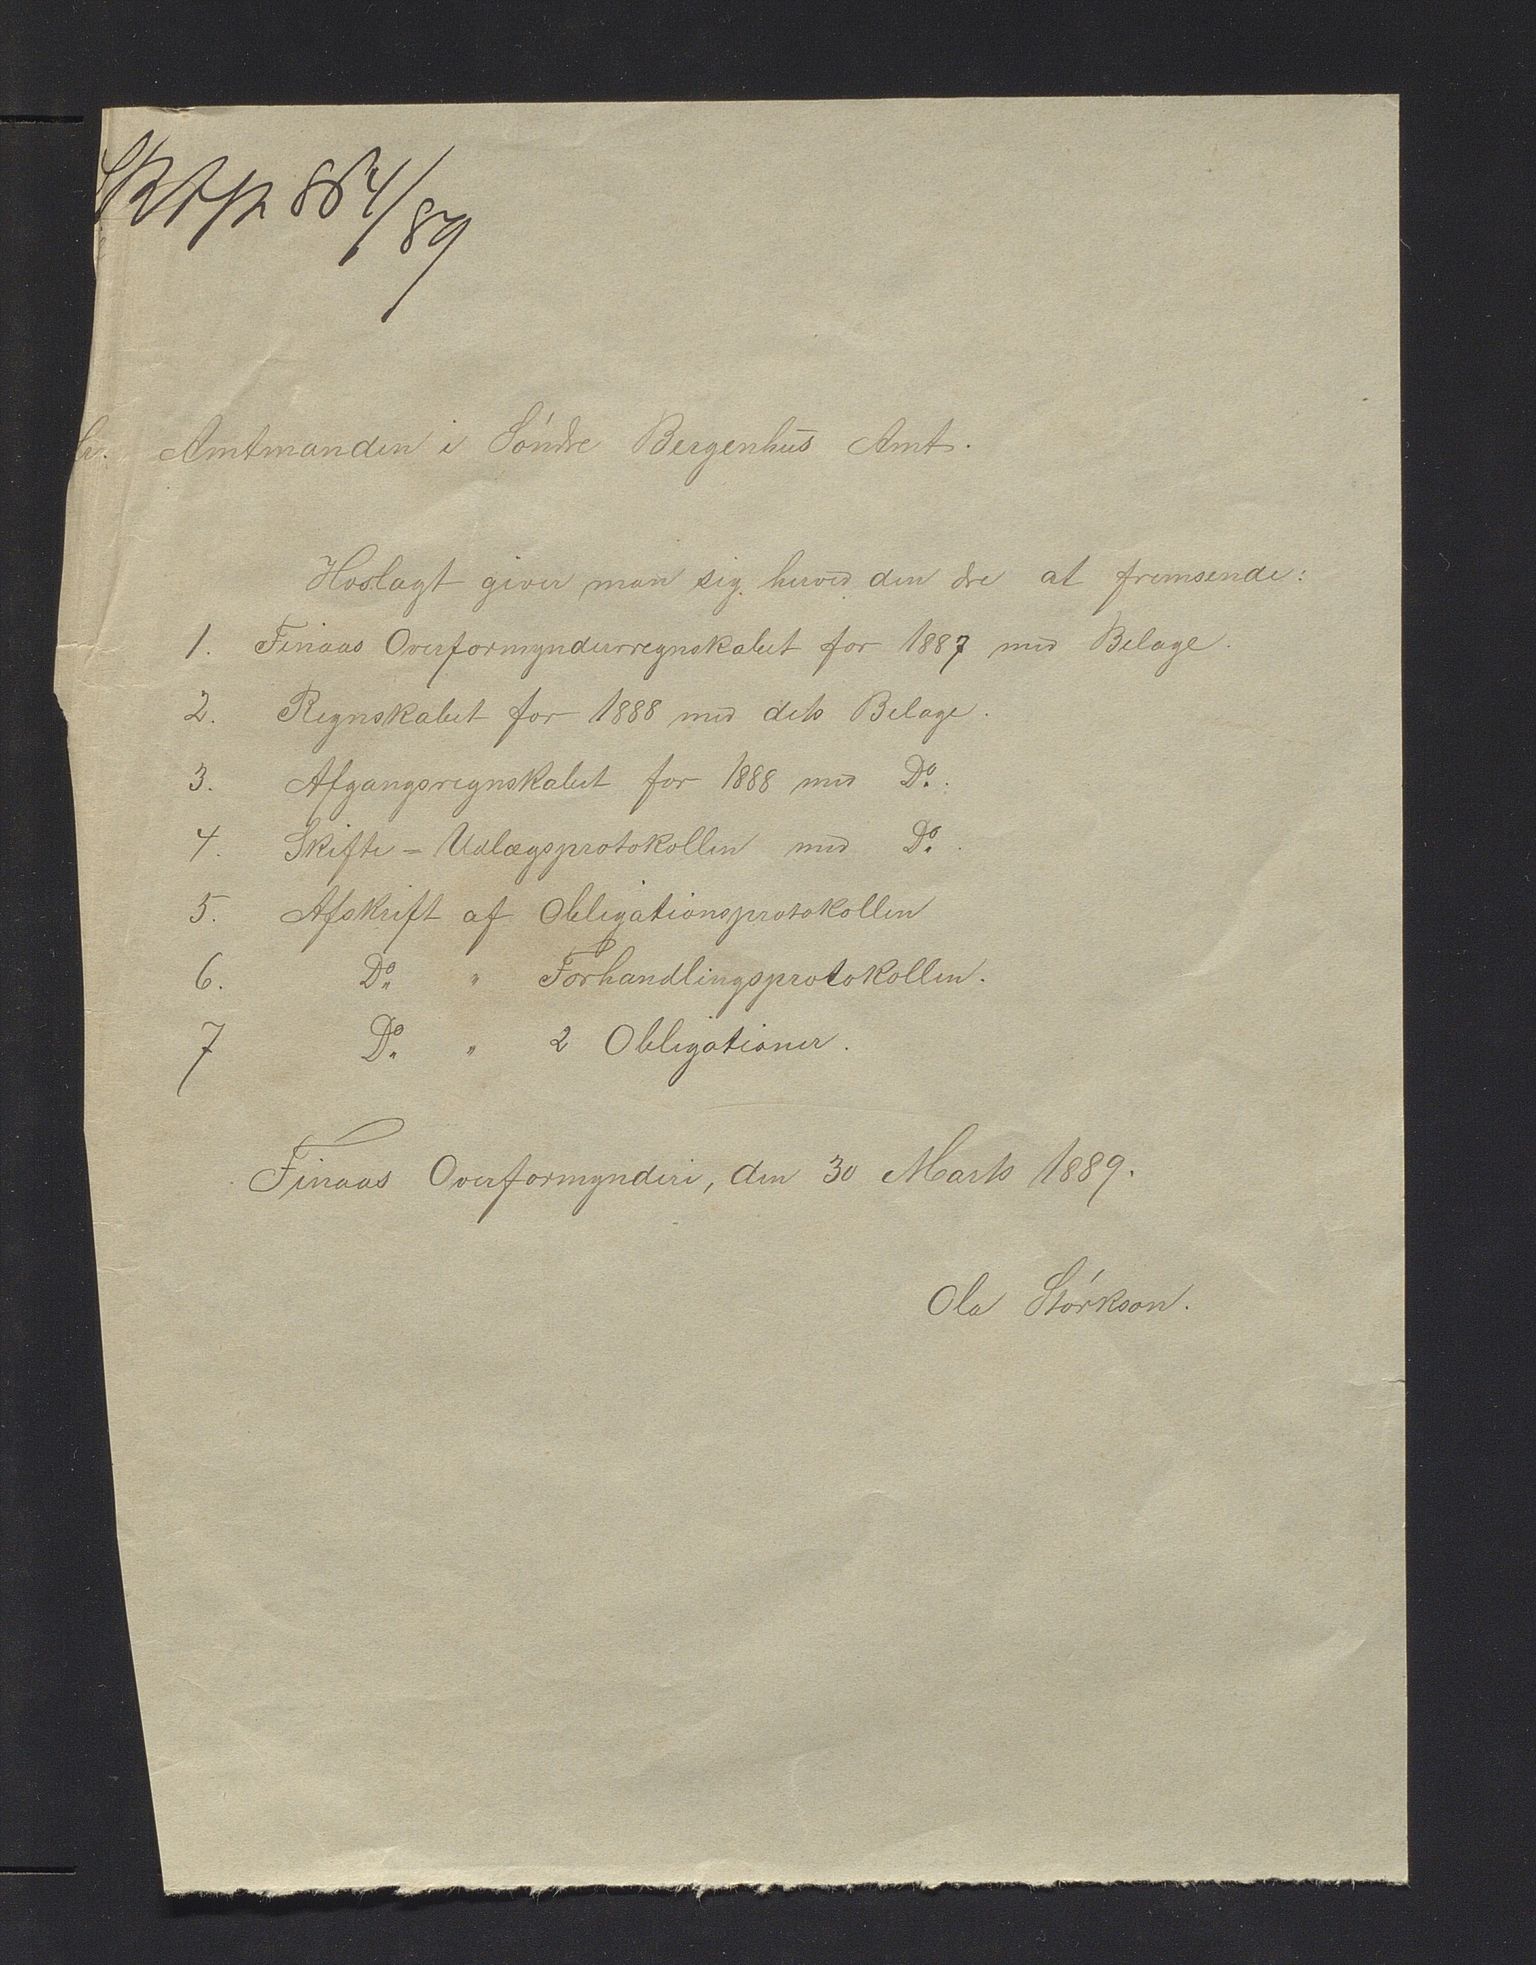 864/89
Hr. Amtmanden i Söndre Bergenhus Amt.
Hoslagt giver man sig herved den Ære at fremsende:
1. Finaas Overformynderregnskabet for 1887 med Belage.
2. Regnskabet for 1888 med dets Belage.
3. Afgangsregnskabet for 1888 med Do.
4. Skifte = Udlægsprotokollen med Do.
5. Afskrift af Obligationsprotokollen
6. Do. " Forhandlingsprotokollen.
7 Do. " 2 Obligationer.
Finaas Overformynderi, den 30 Marts 1889.
Ola Störkson.